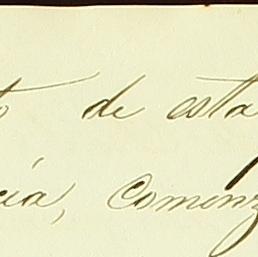 o de esta
cia, Comenz